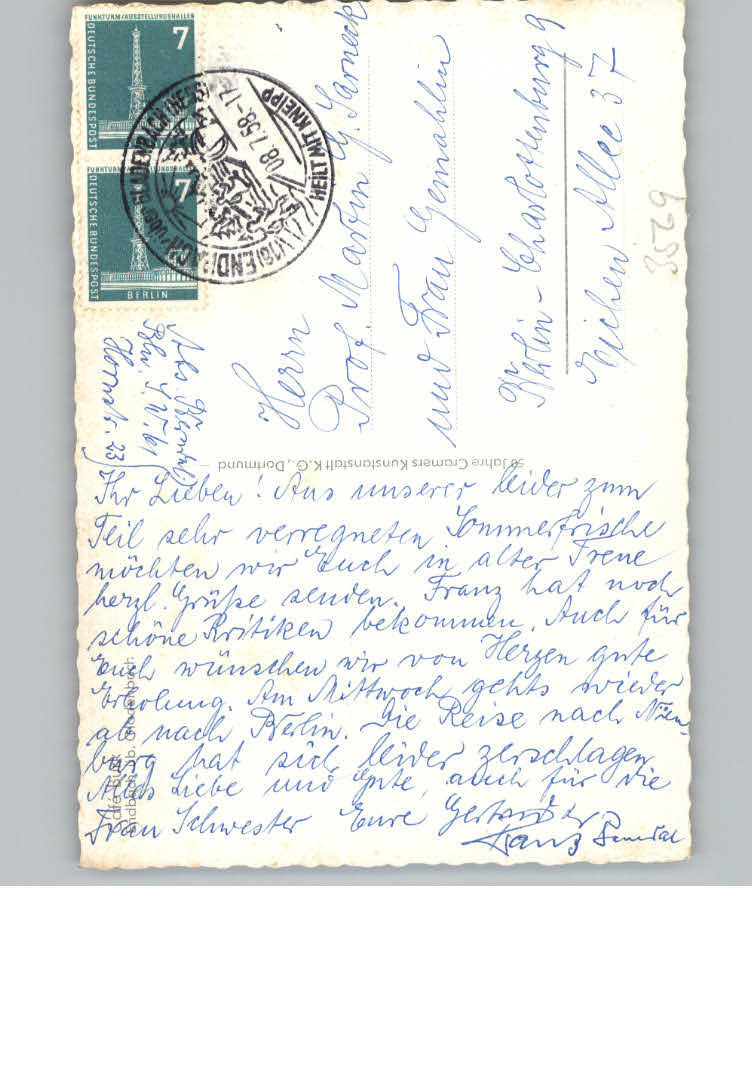 FUNKTURM/AUSSTELLUNGSHALLEN
7
DEUTSCHE BUNDESPOST
FUNKTURM/AUSSTELLUNGSHALLEN
7
DEUTSCHE BUNDESPOST
BERLIN
ENDBACH
08.7.58-17
HEILT MIT KNEIPP
Herrn
Prof. Martin G. Sarneck
und Frau Gemahlin
Berlin-Charlottenburg 9
Eichen Allee 37
3529
Abs.
Bln. S.W. 61
Hornstr. 23
50 Jahre Cramers Kunstanstalt K.G., Dortmund
Ihr Lieben! Aus unserer leider zum
Teil sehr verregneten Sommerfrische
möchten wir Euch in alter Treue
herzl. Grüße senden. Franz hat noch
schöne Kritiken bekommen. Auch für
Euch wünschen wir von Herzen gute
Erholung. Am Mittwoch gehts wieder
ab nach Berlin. Die Reise nach Nürn-
berg hat sich leider zerschlagen.
Alles Liebe und Gute, auch für die
Frau Schwester Eure Gertrud
Franz
Endbach üb. Gladenbach